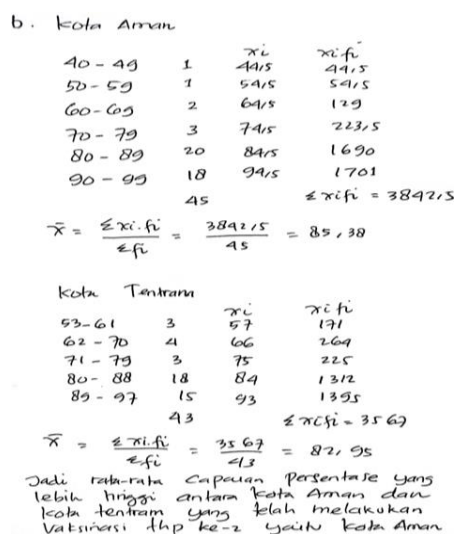 b. Kota Aman
xi xifi
40 - 49 1 44,5 44,5
50 - 59 1 54,5 54,5
60 - 69 2 64,5 129
70 - 79 3 74,5 223,5
80 - 89 20 84,5 1690
90 - 99 18 94,5 1701
45 Σxifi = 3842,5
x̄ = Σxi.fi / Σfi = 3842,5 / 45 = 85,38
Kota Tentram
xi xifi
53-61 3 57 171
62 - 70 4 66 264
71 - 79 3 75 225
80 - 88 18 84 1312
89 - 97 15 93 1395
43 Σxifi = 3567
x̄ = Σxi.fi / Σfi = 3567 / 43 = 82,95
Jadi rata-rata capaian persentase yang
lebih tinggi antara kota Aman dan
kota tentram yang telah melakukan
vaksinasi thp ke-2 yaitu kota Aman